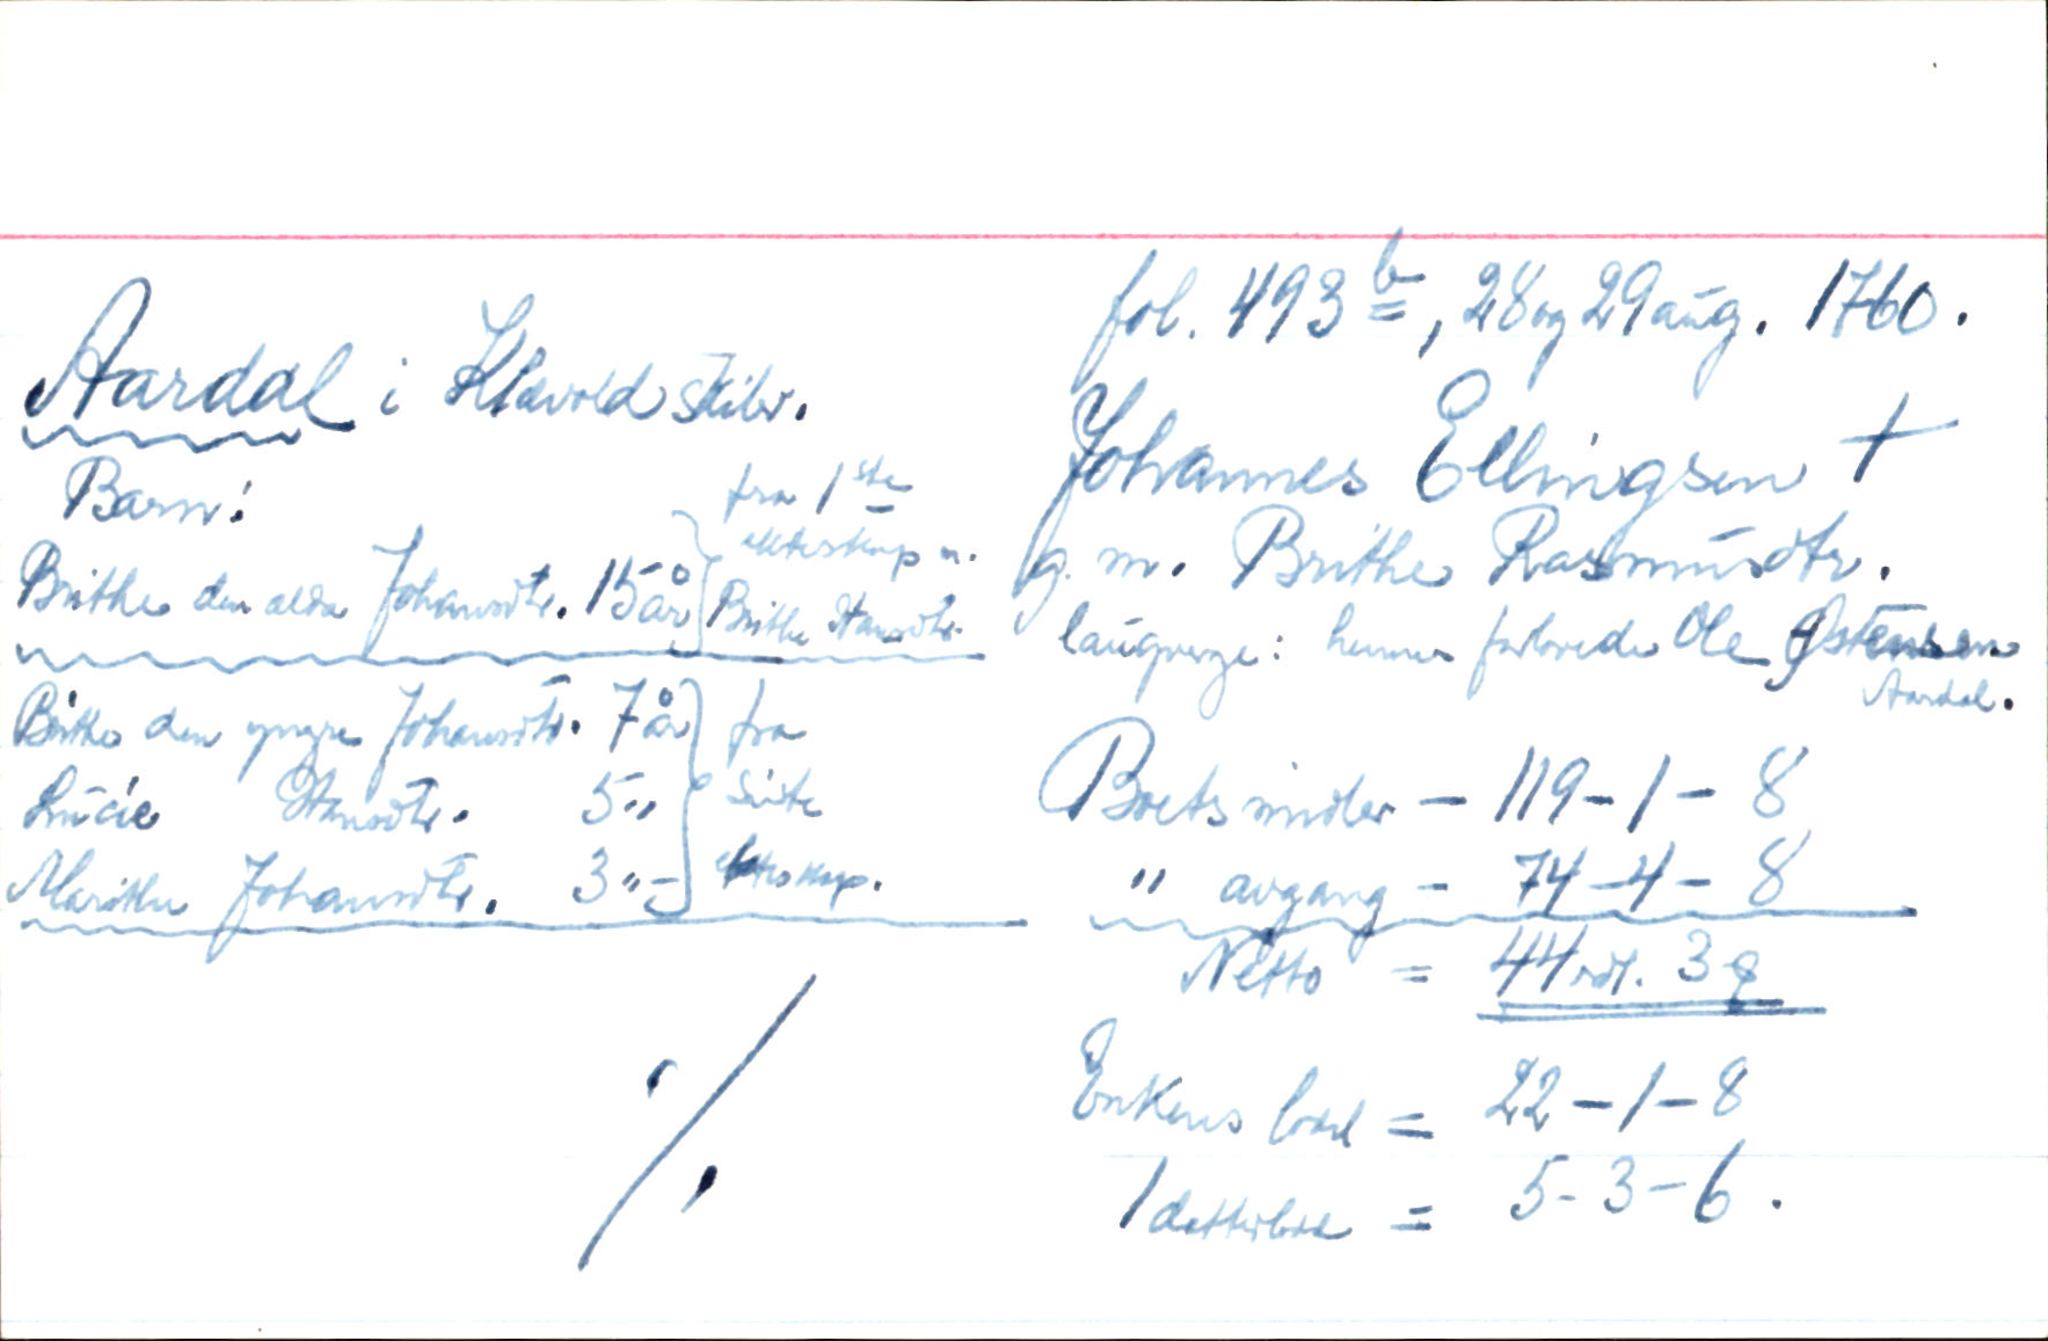 fol. 493 b, 28 og 29 aug. 1760.
Aardal i Klævold skibr.
Johannes Ellingsen †
g. m. Brithe Rasmusdtr.
laugverge: hennes forlovede Ole Østensen
Aardal.
Barn:
Brithe den eldre Johansdtr. 15 år
fra 1ste
ekteskap m.
Brithe Hansdtr.
Brithe den yngre Johansdtr. 7 år
Lucie Hansdtr. 5 "
Marithe Johansdtr. 3 " -
fra
siste
ekteskap.
Boets midler - 119 - 1 - 8
" avgang - 74 - 4 - 8
Netto = 44 rdl. 3
Enkens lodd = 22 - 1 - 8
1 datterlodd = 5 - 3 - 6.
./.